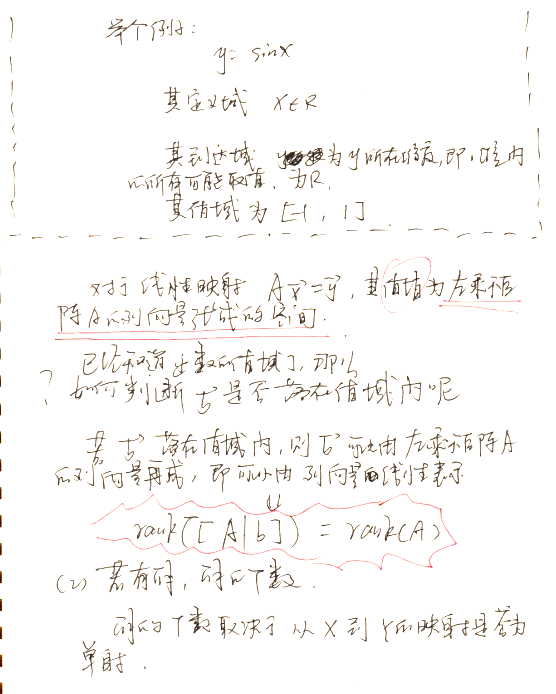 举个例子:
y = sinx
其定义域 x∈R
其到达域 为y所在维度,即1维内
的所有可能取值,为R.
其值域为 [-1, 1]
对于线性映射 Ax=y,其值域为左乘矩
阵A的列向量张成的空间.
已经知道 数的值域了,那么
? 如何判断 b 是否落在值域内呢
若 b 落在值域内,则 b 可以由左乘矩阵A
的列向量 成,即可以由列向量的线性表示
rank([A|b]) = rank(A)
(2) 若有解,解的个数.
解的个数取决于从X到Y的映射是否为
单射.